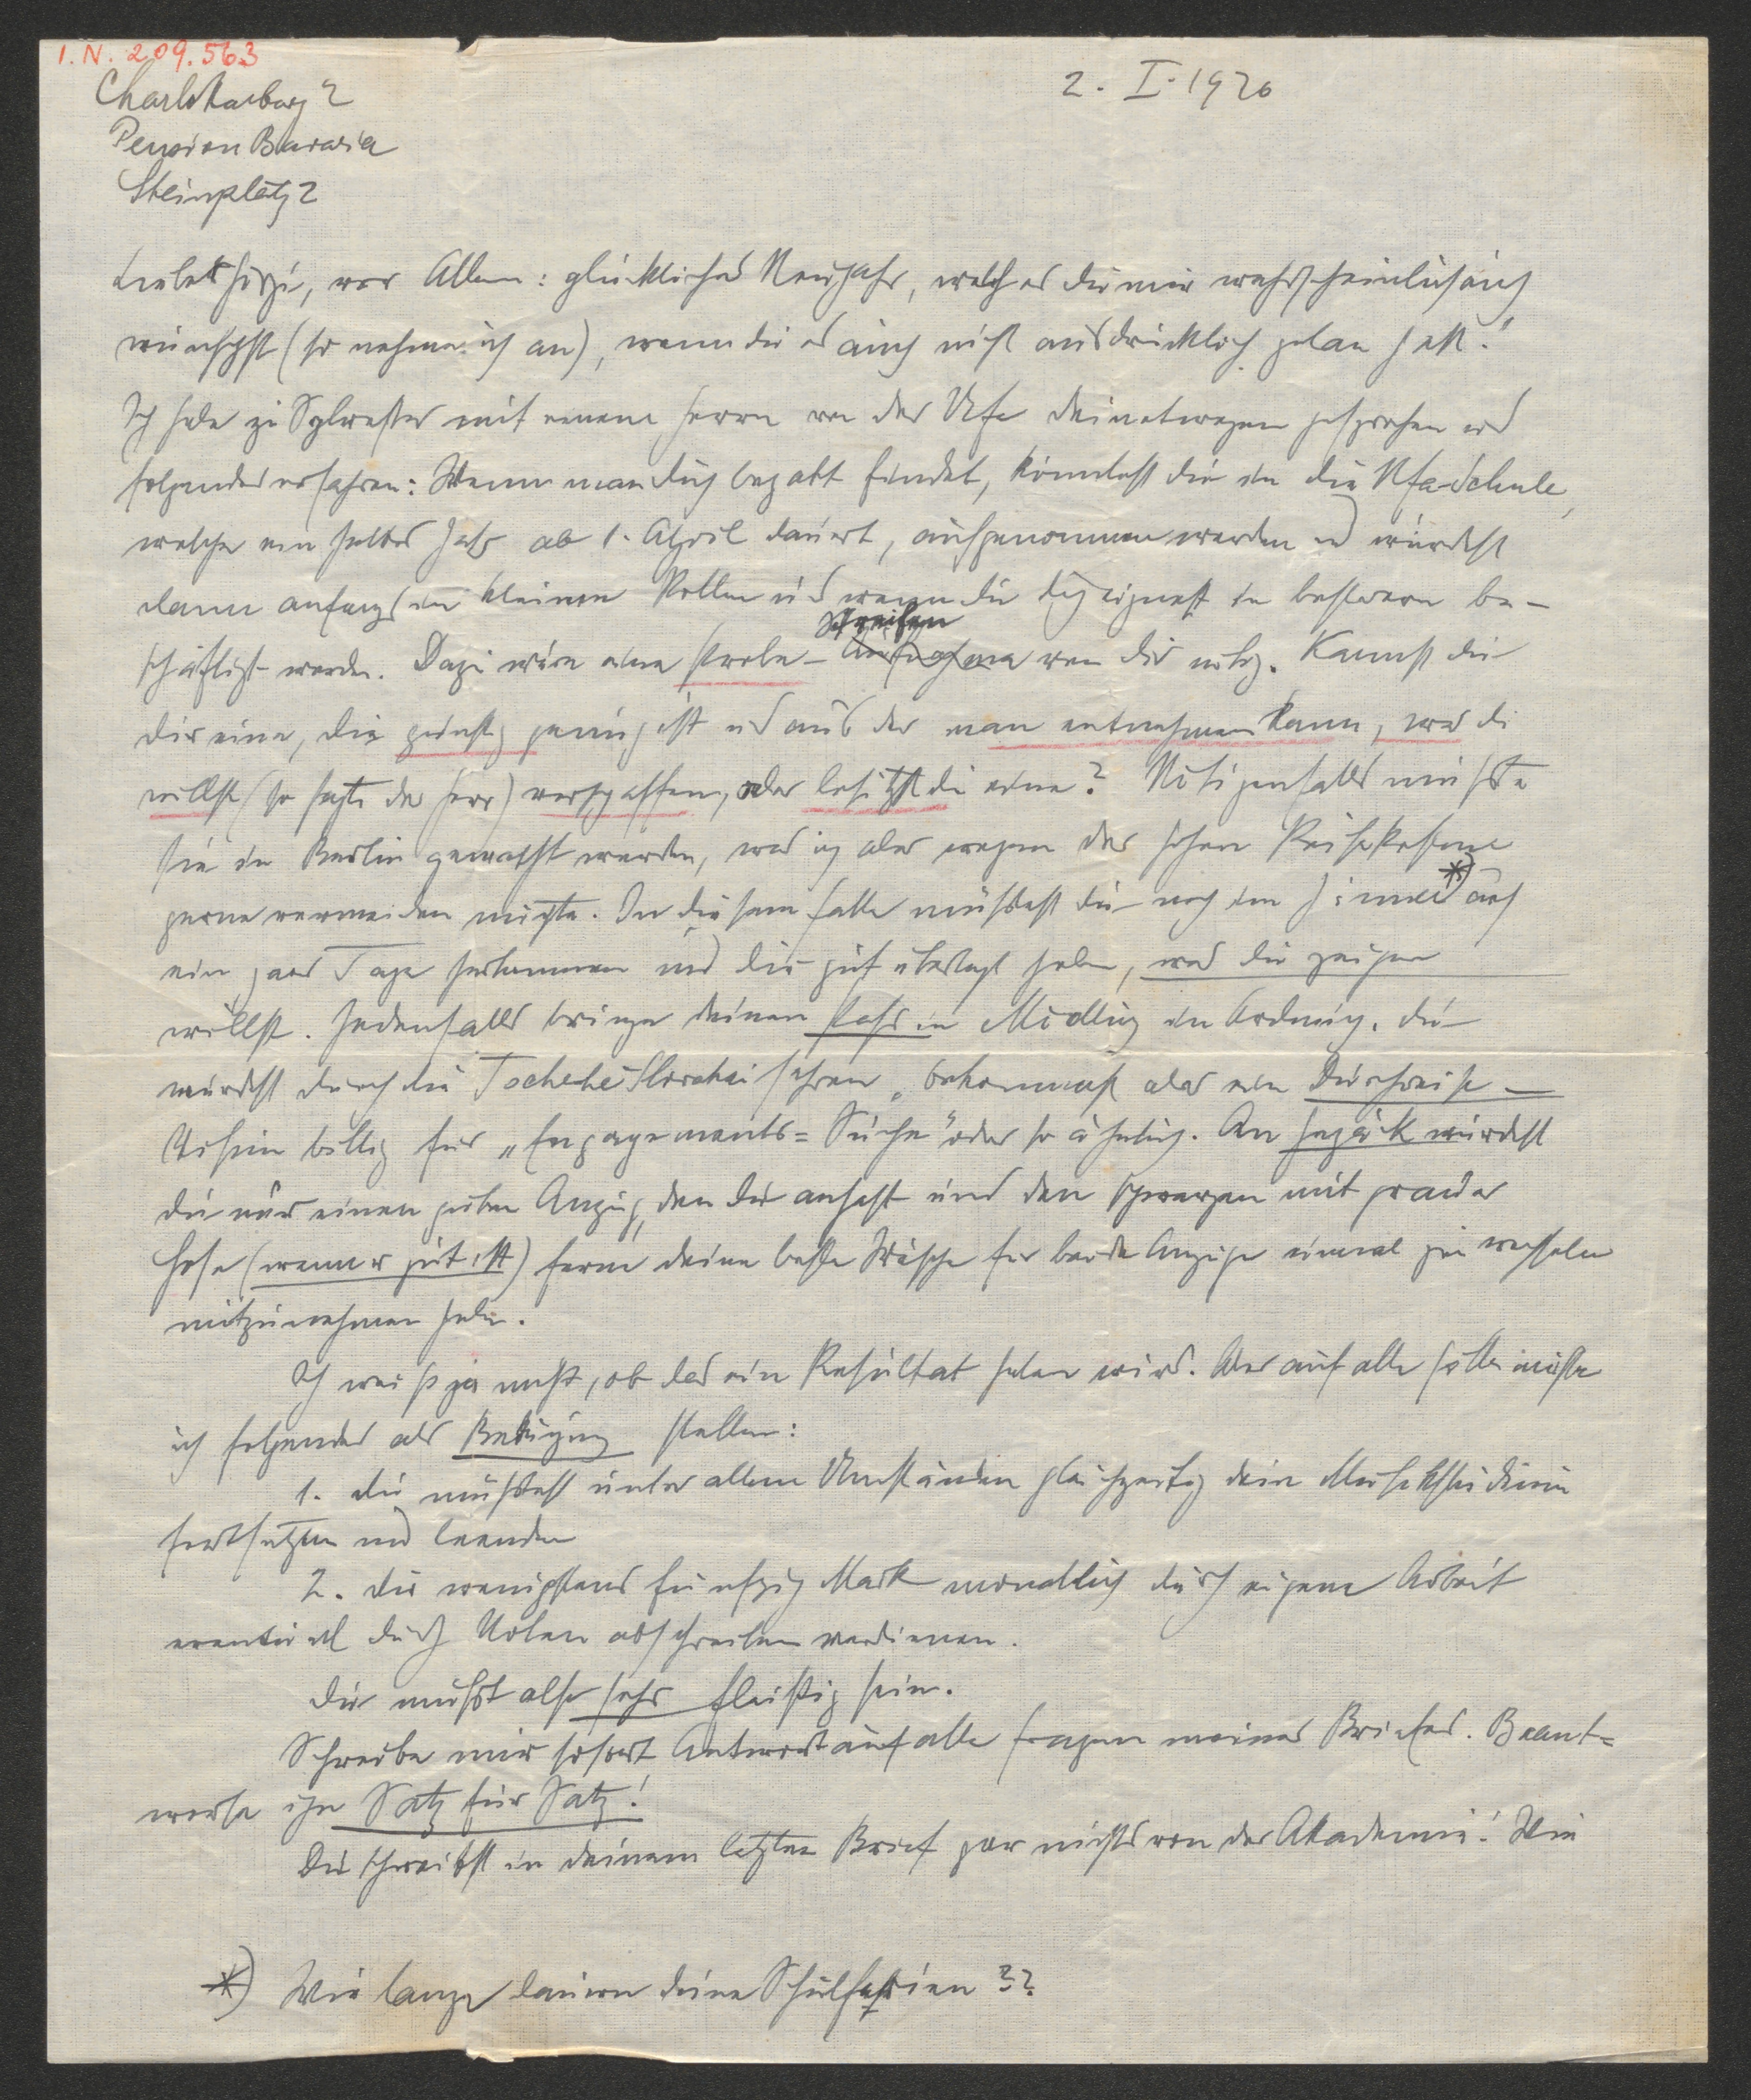 I.N. 209.563
Charlottenburg 2
Pension Bavaria
Steinplatz 2
2. I. 1926
Lieber, vor Allem: glückliches Neujahr, welches du mir wahrscheinlich auch
wünschst (so nehme ich an), wenn du es auch nicht ausdrücklich getan hast!
Ich habe zu Sylvester mit einem Herrn von der Ufa deinetwegen gesprochen und
folgendes erfahren: Wenn man dich begabt findet, könntest du in die Ufa-Schule,
welche ein halbes Jahr ab 1. April dauert, aufgenommen werden und würdest
dann anfangs in kleinen Rollen und wenn du dich eignest in besseren be-
Streifen
schäftigt werden. Dazu wäre eine Probe-Aufnahme von dir nötig. Kannst du
dir eine, die günstig genug ist und aus der man entnehmen kann, was du
willst (so sagte der Herr) verschaffen, oder besitzst du eine? Nötigenfalls müsste
sie in Berlin gemacht werden, was ich aber wegen der hohen Reisekosten
gerne vermeiden möchte. In diesem Falle müsstest du noch im Jänner *) auf
ein paar Tage herkommen und dir gut überlegt haben, was du zeigen
willst. Jedenfalls bringe deinen Pass in Mödling in Ordnung. Du
würdest durch die Tschecheslovakei fahren, bekommst aber ein Durchreise-
Visum billig für „Engagements-Suche" oder so ähnlich. An Gepäck würdest
du nur einen guten Anzug, den du anhast und den schwarzen mit grauer
Hose (wenn er gut ist) ferner deine beste Wäsche für beide Anzüge einmal zu wechseln
mitzunehmen haben.
Ich weiß ja nicht, ob das ein Resultat haben wird. Aber auf alle Fälle müsste
ich folgendes als Bedingung stellen:
1. du müsstest unter allen Umständen gleichzeitig dein Musikstudium
fortsetzen und beenden
2. du wenigstens fünfzig Mark monatlich durch eigene Arbeit
eventuell durch Noten abschreiben verdienen.
Du musst also sehr fleissig sein.
Schreibe mir sofort Antwort auf alle Fragen meines Briefes. Beant-
worte ihn Satz für Satz!
Du schreibst in deinem letzten Brief gar nichts von der Akademie! Wie
*) Wie lange dauern deine Schulferien??